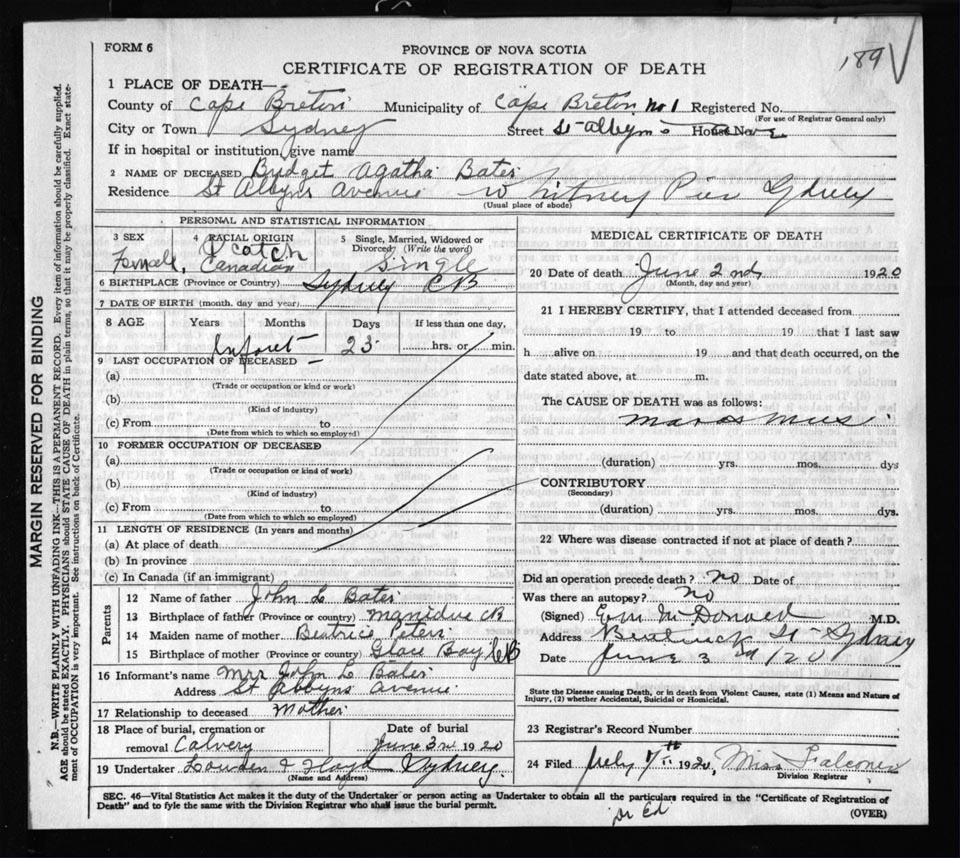 FORM 6
PROVINCE OF NOVA SCOTIA
189
CERTIFICATE OF REGISTRATION OF DEATH
1 PLACE OF DEATH—
County of Cape Breton Municipality of Cape Breton No 1 Registered No.
(For use of Registrar General only)
City or Town Sydney Street St Albyns House No.
If in hospital or institution, give name
2 NAME OF DECEASED Bridget Agatha Bates
Residence St Albyns Avenue Whitney Pier Sydney
(Usual place of abode)
PERSONAL AND STATISTICAL INFORMATION
3 SEX Female
4 RACIAL ORIGIN Scotch Canadian
5 Single, Married, Widowed or Divorced (Write the word) Single
6 BIRTHPLACE (Province or Country) Sydney CB
7 DATE OF BIRTH (month, day and year)
8 AGE Years Months Days If less than one day,
Infant 23 hrs. or min.
9 LAST OCCUPATION OF DECEASED —
(a)
(Trade or occupation or kind or work)
(b)
(Kind of industry)
(c) From to
(Date from which to which so employed)
10 FORMER OCCUPATION OF DECEASED
(a)
(Trade or occupation or kind of work)
(b)
(Kind of industry)
(c) From to
(Date from which to which so employed)
11 LENGTH OF RESIDENCE (In years and months)
(a) At place of death
(b) In province
(c) In Canada (if an immigrant)
Parents
12 Name of father John L Bates
13 Birthplace of father (Province or country) CB
14 Maiden name of mother Beatrice Peters
15 Birthplace of mother (Province or country) Glace Bay CB
16 Informant's name Mrs John L Bates
Address St Albyns Avenue
17 Relationship to deceased Mother
18 Place of burial, cremation or removal Calvery
Date of burial June 3rd 1920
19 Undertaker Lowden & Floyd Sydney
(Name and Address)
MEDICAL CERTIFICATE OF DEATH
20 Date of death June 2nd 1920
(Month, day and year)
21 I HEREBY CERTIFY, that I attended deceased from
19 to 19 that I last saw
h alive on 19 and that death occurred, on the
date stated above, at m.
The CAUSE OF DEATH was as follows:
Marasmus
(duration) yrs. mos. dys
CONTRIBUTORY
(Secondary)
(duration) yrs. mos. dys.
22 Where was disease contracted if not at place of death?
Did an operation precede death? No Date of
Was there an autopsy? No
(Signed) McDonald M.D.
Address St - Sydney
Date June 3rd /20
State the Disease causing Death, or in death from Violent Causes, state (1) Means and Nature of
Injury, (2) whether Accidental, Suicidal or Homicidal.
23 Registrar's Record Number
24 Filed July 7th 1920 Miss Falconer
Division Registrar
SEC. 46—Vital Statistics Act makes it the duty of the Undertaker or person acting as Undertaker to obtain all the particulars required in the "Certificate of Registration of
Death" and to fyle the same with the Division Registrar who shall issue the burial permit.
(OVER)
MARGIN RESERVED FOR BINDING
N.B.—WRITE PLAINLY WITH UNFADING INK—THIS IS A PERMANENT RECORD. Every item of information should be carefully supplied.
AGE should be stated EXACTLY. PHYSICIANS should STATE CAUSE OF DEATH in plain terms, so that it may be properly classified. Exact statement of OCCUPATION is very important. See instructions on back of Certificate.